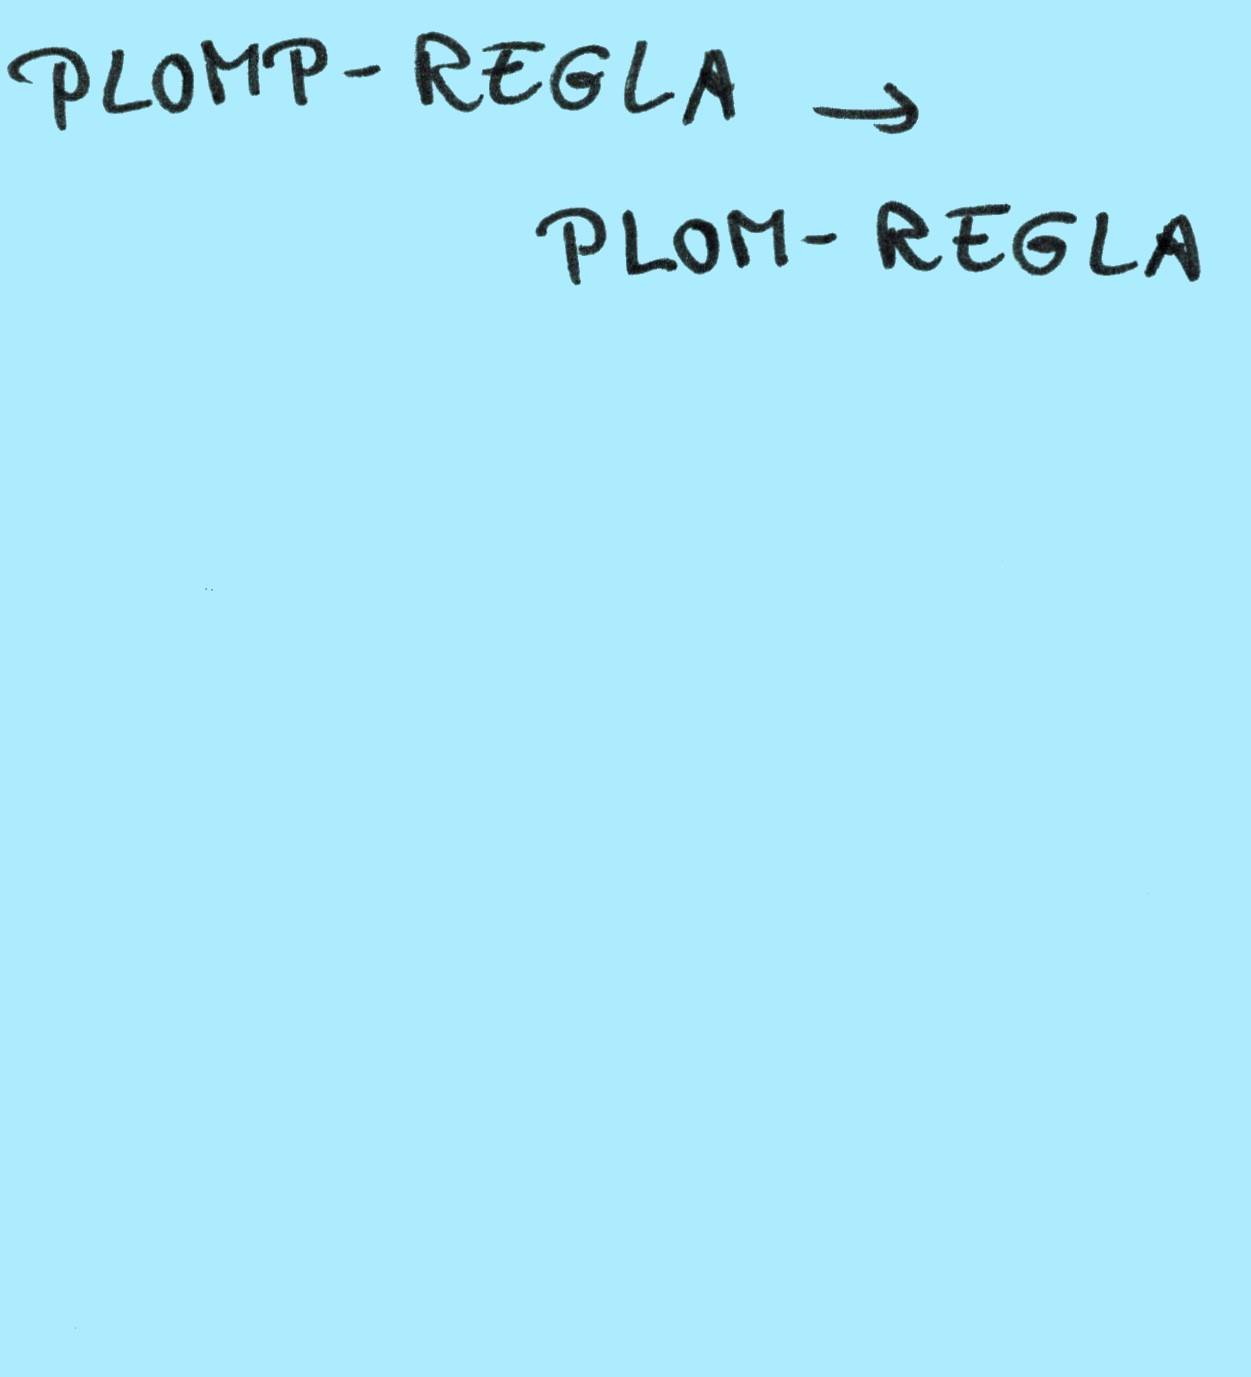 PLOMP-REGLA →
PLOM-REGLA